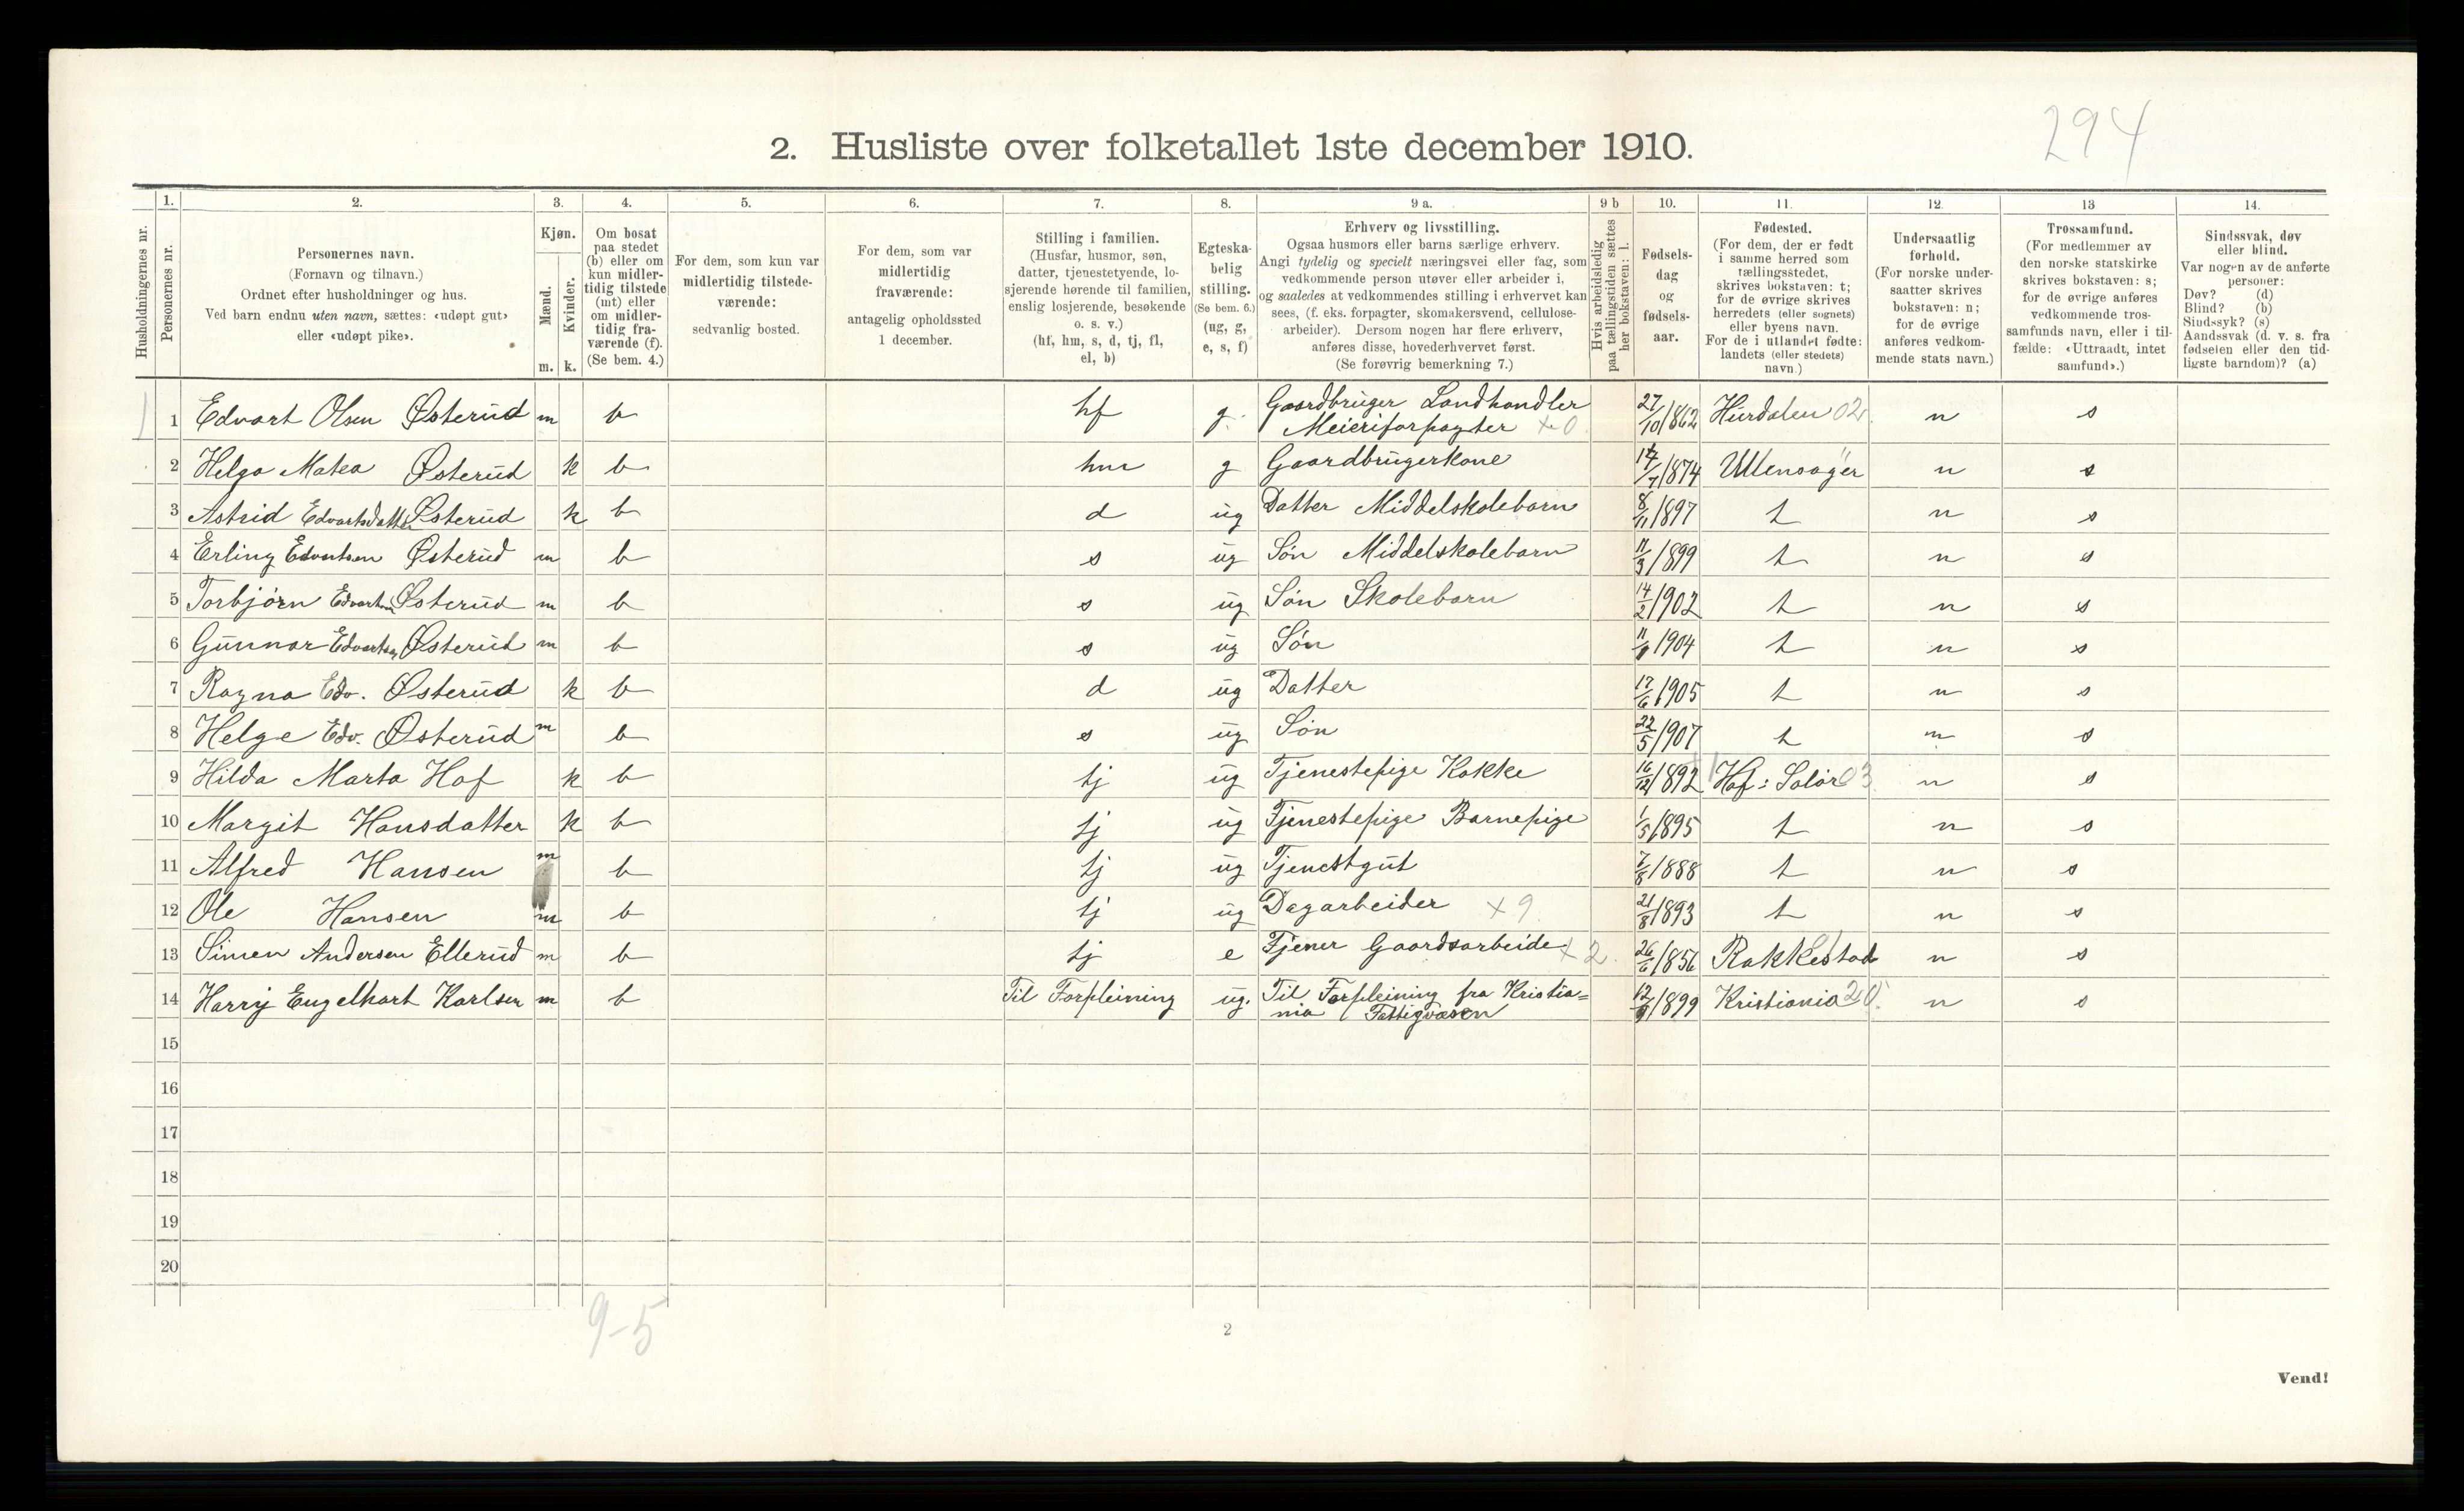 294
2. Husliste over folketallet 1ste december 1910.
Husholdningernes nr.
1. Personernes nr.
2. Personernes navn.
(Fornavn og tilnavn.)
Ordnet efter husholdninger og hus.
Ved barn endnu uten navn, sættes: «udøpt gut»
eller «udøpt pike».
3. Kjøn.
Mænd. m.
Kvinder. k.
4. Om bosat
paa stedet
(b) eller om
kun midler-
tidig tilstede
(mt) eller
om midler-
tidig fra-
værende (f).
(Se bem. 4.)
5. For dem, som kun var
midlertidig tilstede-
værende:
sedvanlig bosted.
6. For dem, som var
midlertidig
fraværende:
antagelig opholdssted
1 december.
7. Stilling i familien.
(Husfar, husmor, søn,
datter, tjenestetyende, lo-
sjerende hørende til familien,
enslig losjerende, besøkende
o. s. v.)
(hf, hm, s, d, tj, fl,
el, b)
8. Egteska-
belig
stilling.
(Se bem. 6.)
(ug, g,
e, s, f)
9 a. Erhverv og livsstilling.
Ogsaa husmors eller barns særlige erhverv.
Angi tydelig og specielt næringsvei eller fag, som
vedkommende person utøver eller arbeider i,
og saaledes at vedkommendes stilling i erhvervet kan
sees, (f. eks. forpagter, skomakersvend, cellulose-
arbeider). Dersom nogen har flere erhverv,
anføres disse, hovederhvervet først.
(Se forøvrig bemerkning 7.)
9 b Hvis arbeidsledig
paa tællingstiden sættes
her bokstaven: l.
10. Fødsels-
dag
og
fødsels-
aar.
11. Fødested.
(For dem, der er født
i samme herred som
tællingsstedet,
skrives bokstaven: t;
for de øvrige skrives
herredets (eller sognets)
eller byens navn.
For de i utlandet fødte:
landets (eller stedets)
navn.)
12. Undersaatlig
forhold.
(For norske under-
saatter skrives
bokstaven: n;
for de øvrige
anføres vedkom-
mende stats navn.)
13 Trossamfund.
(For medlemmer av
den norske statskirke
skrives bokstaven: s;
for de øvrige anføres
vedkommende tros-
samfunds navn, eller i til-
fælde: «Uttraadt, intet
samfund».)
14. Sindssvak, døv
eller blind.
Var nogen av de anførte
personer:
Døv? (d)
Blind? (b)
Sindssyk? (s)
Aandssvak (d. v. s. fra
fødselen eller den tid-
ligste barndom)? (a)
1 1 Edvart Olsen Østerud m b hf g. Gaardbruger Landhandler Meieriforpagter x 0 27/10 1862 Hurdalen 02 n s
2 Helga Matea Østerud k b hm g Gaardbrugerkone /7 1874 Ullensager n s
3 Astrid Edvartsdatter Østerud k b d ug Datter Middelskolebarn 8/11 1897 t n s
4 Erling Edvartsen Østerud m b s ug Søn Middelskolebarn 11/3 1899 t n s
5 Torbjørn Edvartsen Østerud m b s ug Søn Skolebarn 14/2 1902 t n s
6 Gunnar Edvartsen Østerud m b s ug Søn 11/ 1904 t n s
7 Ragna Edv. Østerud k b d ug Datter 17/6 1905 t n s
8 Helge Edv. Østerud m b s ug Søn 22/5 1907 t n s
9 Hilda Marta Hof k b tj ug Tjenestepige Kokke 16/12 1892 Hof: Solør 03 n s
10 Margit Hansdatter k b tj ug Tjenestepige Barnepige 1/5 1895 t n s
11 Alfred Hansen m b tj ug Tjenestgut 7/8 1888 t n s
12 Ole Hansen m b tj ug Dagarbeider x 9. 21/8 1893 t n s
13 Simen Andersen Ellerud m b tj e Tjener Gaardsarbeide x 2. 26/6 1856 Rakkestad n s
14 Harry Engelhart Karlsen m b Til Forpleining ug. Til Forpleining fra Kristia=
nia Fattigvæsen 12/9 1899 Kristiania 20. n s
15
16
17
18
19
20
9-5
2
Vend!